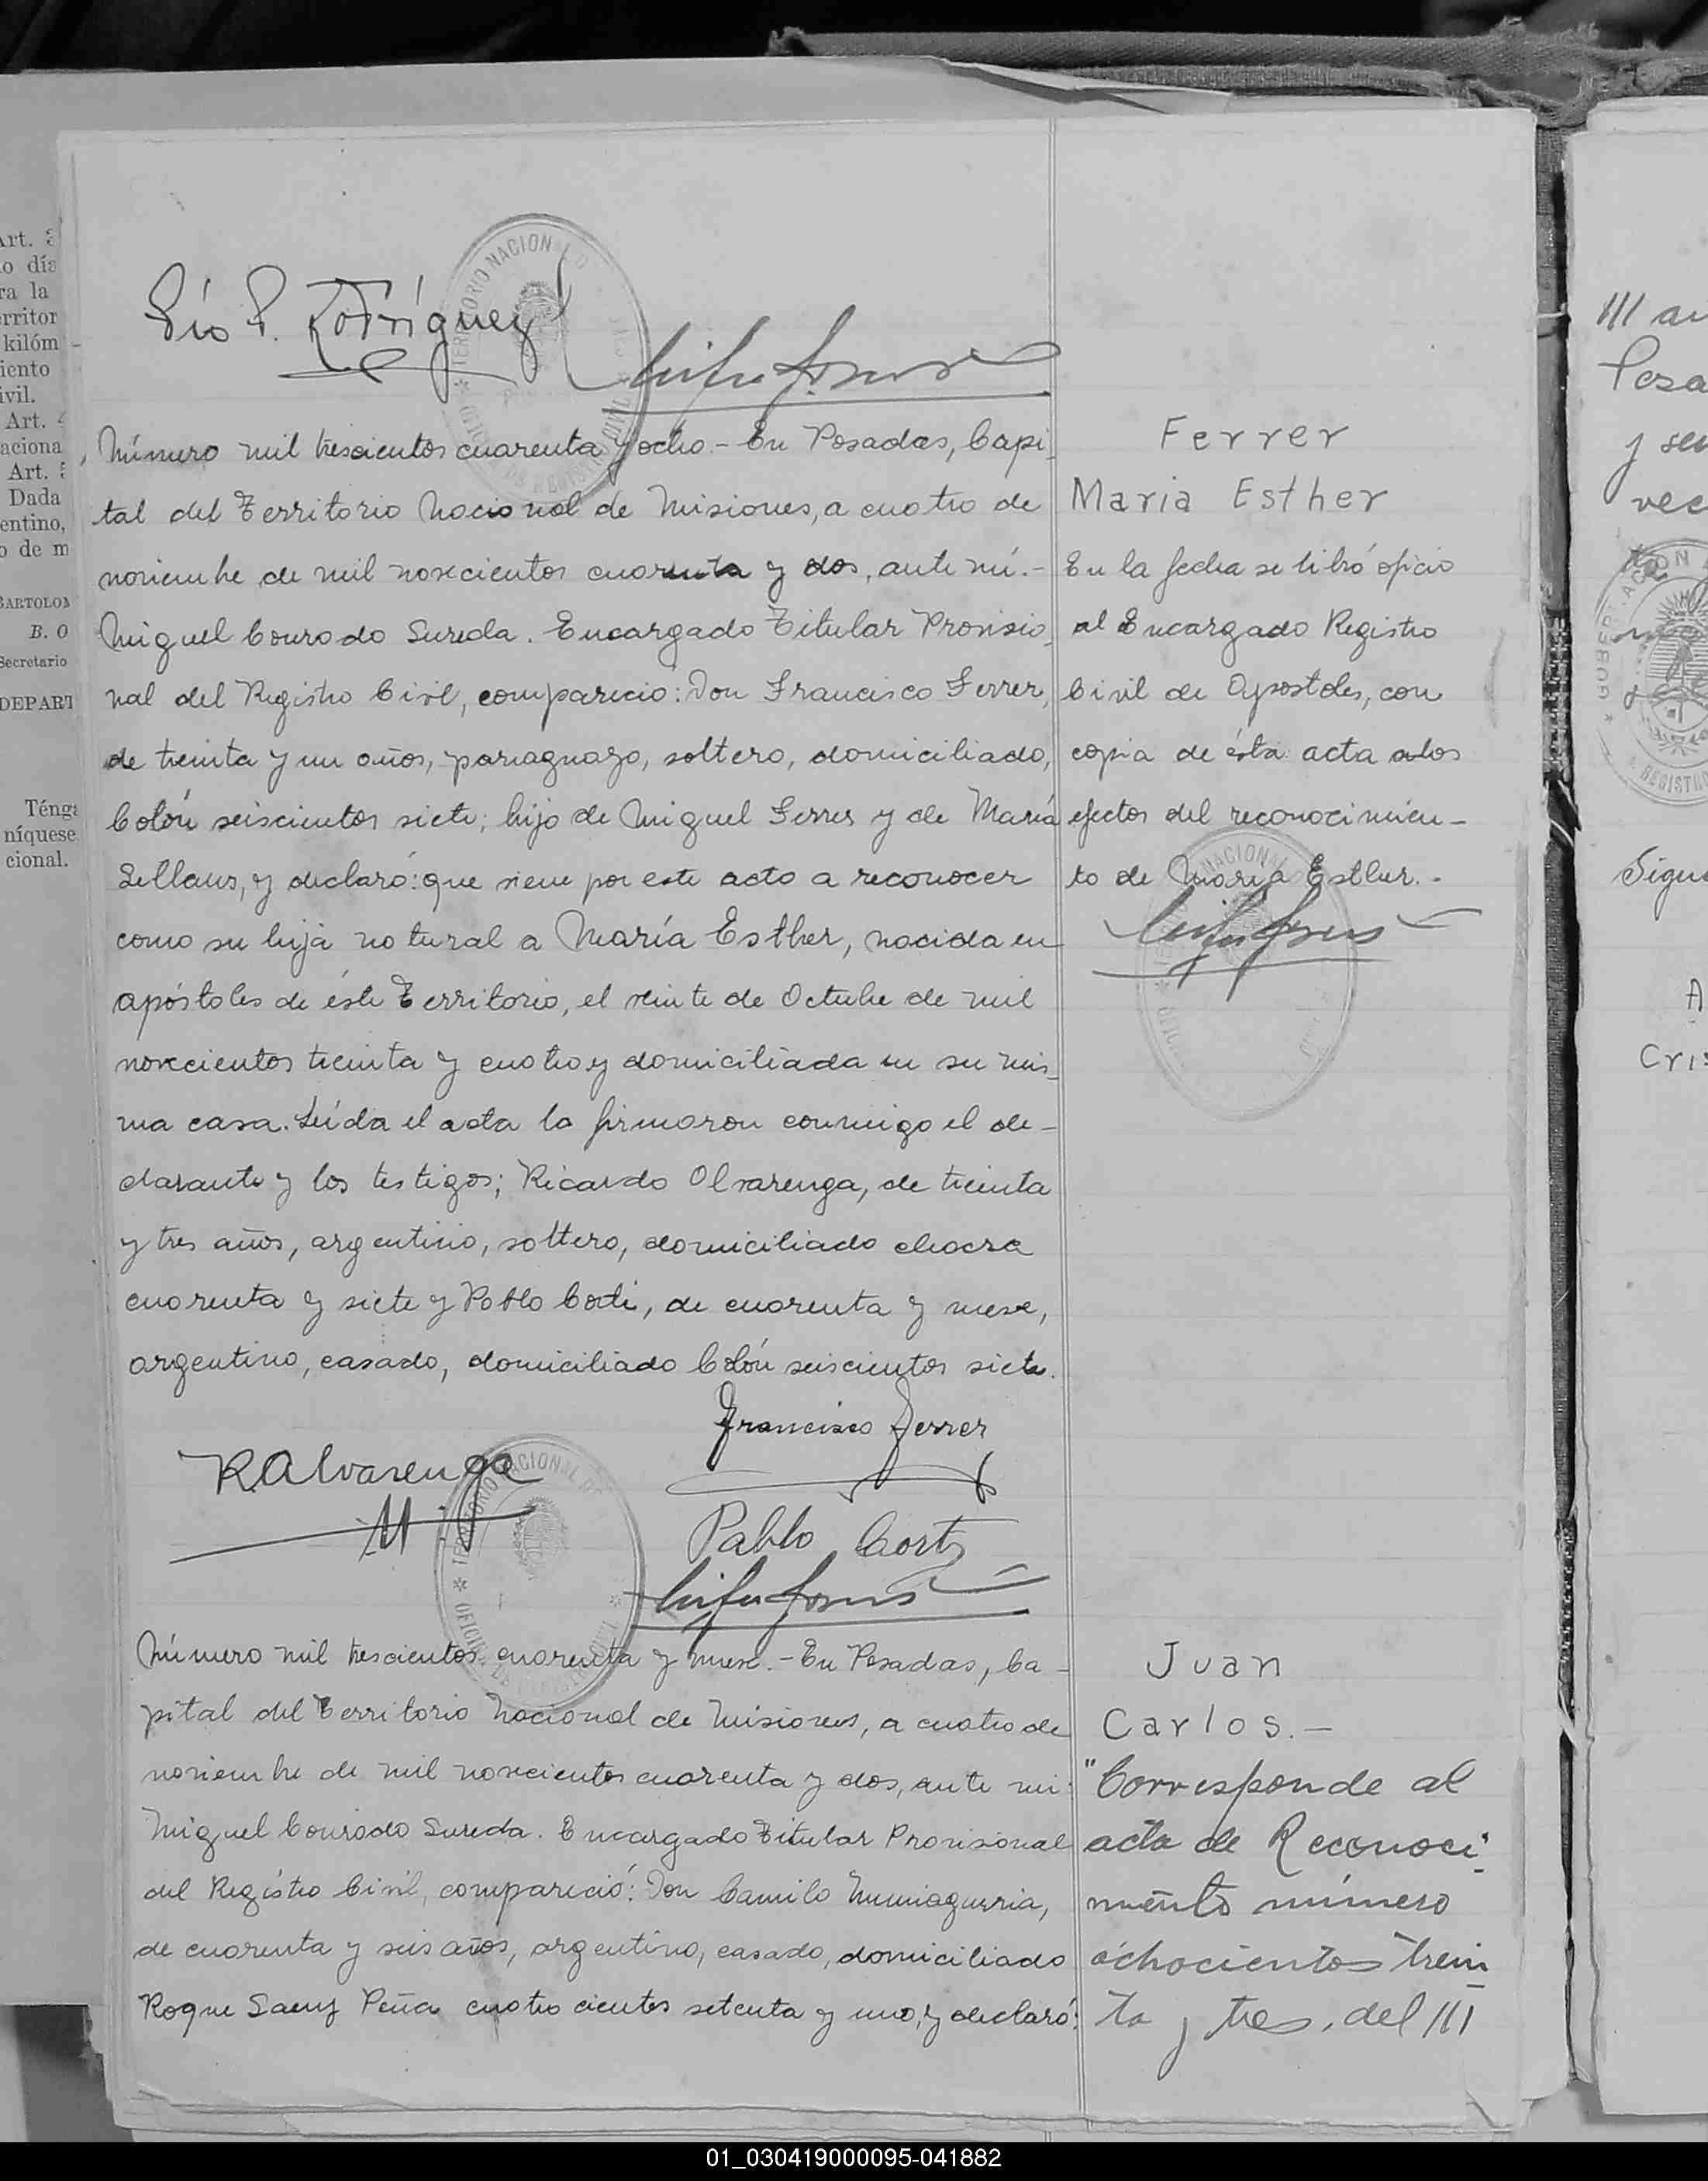 Art. 3
o día
ra la
erritor
kilóm
iento
ivil.
Art. 4
aciona
Art. 5
Dada
entino,
o de m
BARTOLOM
B. O
Secretario
DEPART
Ténga
níquese
cional.
TERRITORIO NACIONAL D
Pío P. Rodríguez
Número mil trescientos cuarenta y ocho.- En Posadas, Capi-
tal del Territorio Nacional de Misiones, a cuatro de
noviembre de mil novecientos cuarenta y dos, ante mí.-
Miguel Conrado Sureda. Encargado Titular Provisio-
nal del Registro Civil, compareció: Don Francisco Ferrer,
de treinta y un años, paraguayo, soltero, domiciliado,
Colón seiscientos siete; hijo de Miguel Ferrer y de María
Sellaus, y declaró: que viene por este acto a reconocer
como su hija natural a María Esther, nacida en
apóstoles de éste Territorio, el veinte de Octubre de mil
novecientos treinta y cuatro y domiciliada en su mis-
ma casa. Leída el acta la firmaron conmigo el de-
clarante y los testigos; Ricardo Alvarenga, de treinta
y tres años, argentino, soltero, domiciliado chacra
cuarenta y siete y Pablo Corti, de cuarenta y nueve,
argentino, casado, domiciliado Colón seiscientos siete.
Francisco Ferrer
R Alvarenga
Pablo Corti
Ferrer
Maria Esther
En la fecha se libró oficio
al Encargado Registro
Civil de Apostoles, con
copia de ésta acta a los
efectos del reconocimien-
to de María Esther.-
Número mil trescientos cuarenta y nueve.- En Posadas, Ca-
pital del Territorio Nacional de Misiones, a cuatro de
noviembre de mil novecientos cuarenta y dos, ante mi:
Miguel Conrado Sureda. Encargado Titular Provisional
del Registro Civil, compareció: Don Camilo Muniagurria,
de cuarenta y seis años, argentino, casado, domiciliado
Roque Saenz Peña cuatrocientos setenta y uno, y declaró:
Juan
Carlos.-
"Corresponde al
acta de Reconoci-
miento número
ochocientos trein
ta y tres, del ///
/// au
Posa
y sen
vec
Sigue
A
Cris
01_030419000095-041882